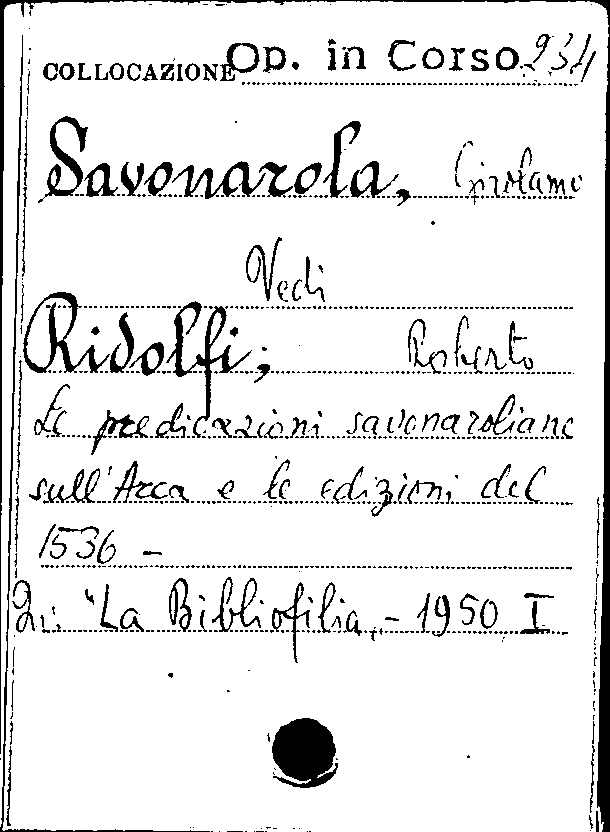 COLLOCAZIONE Op. in Corso 234
Savonarola, Girolamo
Vedi
Ridolfi, Roberto
Le predicazioni savonaroliane
sull'Arca e le edizioni del
1536 -
In: "La Bibliofilia„ - 1950 I